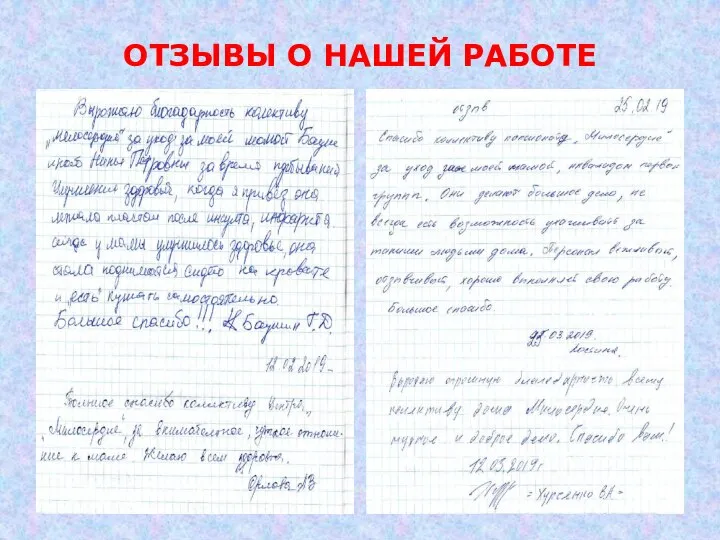 ОТЗЫВЫ О НАШЕЙ РАБОТЕ
Выражаю благодарность колективу
„Мелосердие" за уход за моей мамой
Нины Петровны за время пребывания
здоровья, когда я привёз она
лежала пластом после инсульта, инфаркта
у мамы улучшилось здоровье, она
стала подниматся сидеть на кровате
и „есть" кушать самостоятельно
Большое спасибо!!! Г.Д.
12 02 2019
Большое спасибо коллективу центра
„Милосердие", за внимательное, чуткое отноше-
ние к маме. Желаю всем здоровья.
Орлова
отзыв 25.02 19
Спасибо коллективу пансионата „Милосердие"
за уход за моей мамой, инвалидом первой
группы. Они делают большое дело, не
всегда есть возможность ухаживать за
такими людьми дома. Персонал вежливый,
отзывчивый, хорошо выполняет свою работу.
Большое спасибо.
03 2019.
Выражаю огромную благодарность всему
коллективу дома Милосердия. Очень
нужное и доброе дело. Спасибо Вам!
12.03.2019г